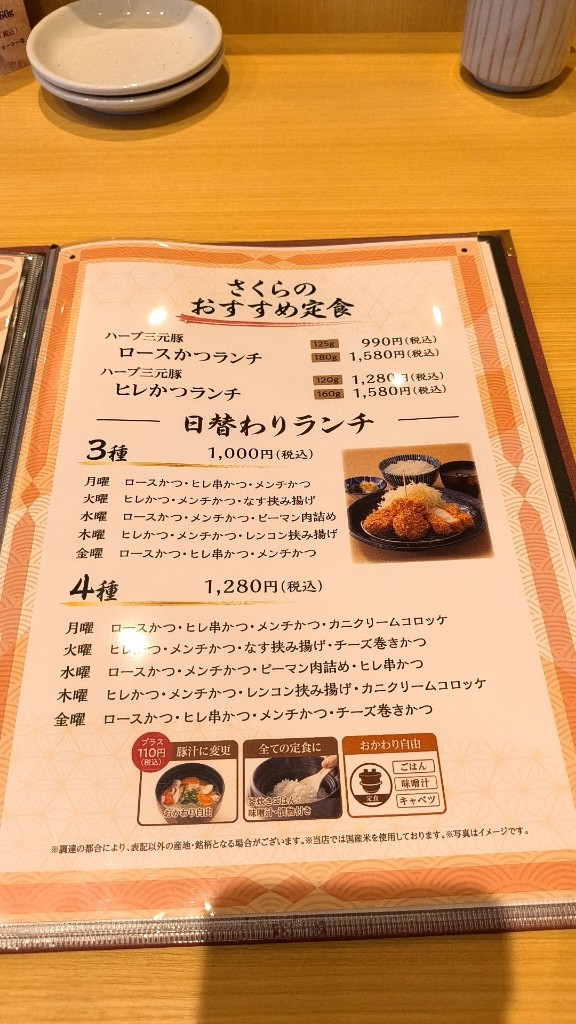 60g
さくらの
おすすめ定食
ハーブ三元豚
ロースかつランチ
125g 990円(税込)
180g 1,580円(税込)
ハーブ三元豚
ヒレかつランチ
120g 1,280円(税込)
160g 1,580円(税込)
日替わりランチ
3種 1,000円(税込)
月曜 ロースかつ・ヒレ串かつ・メンチかつ
火曜 ヒレかつ・メンチかつ・なす挟み揚げ
水曜 ロースかつ・メンチかつ・ピーマン肉詰め
木曜 ヒレかつ・メンチかつ・レンコン挟み揚げ
金曜 ロースかつ・ヒレ串かつ・メンチかつ
4種 1,280円(税込)
月曜 ロースかつ・ヒレ串かつ・メンチかつ・カニクリームコロッケ
火曜 ヒレかつ・メンチかつ・なす挟み揚げ・チーズ巻きかつ
水曜 ロースかつ・メンチかつ・ピーマン肉詰め・ヒレ串かつ
木曜 ヒレかつ・メンチかつ・レンコン挟み揚げ・カニクリームコロッケ
金曜 ロースかつ・ヒレ串かつ・メンチかつ・チーズ巻きかつ
プラス
110円
(税込)
豚汁に変更
おかわり自由
全ての定食に
釜炊きごはん・
味噌汁・漬物付き
おかわり自由
定食
ごはん
味噌汁
キャベツ
※調達の都合により、表記以外の産地・銘柄となる場合がございます。※当店では国産米を使用しております。※写真はイメージです。